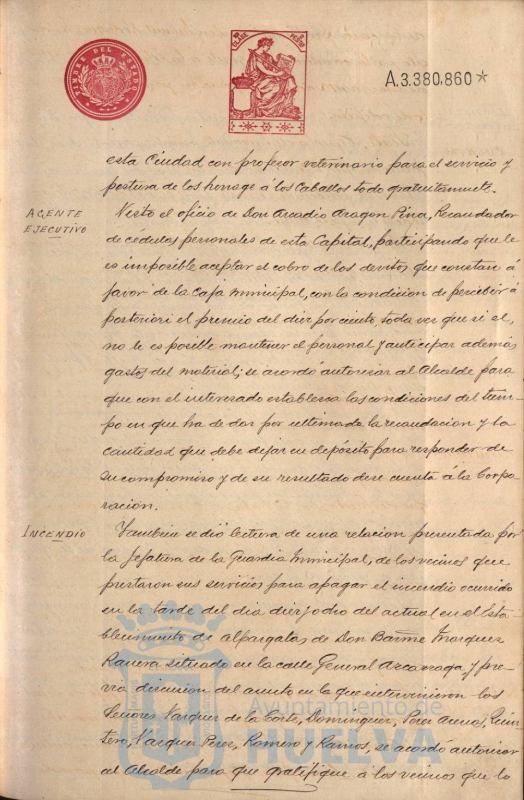 TIMBRE DEL ESTADO
CLASE
A.3.380.860*
esta Ciudad con profesor veterinario para el servicio y
postura de los herrage á los Caballos todo gratuitamente.
AGENTE
EJECUTIVO
Visto el oficio de Don Arcadio Aragon Pina, Recaudador
de cédulas personales de esta Capital, participando que le
es imposible aceptar el cobro de los devitos que constan á
favor de la Caja Municipal, con la condicion de percibir á
posteriori el premio del diez por ciento, toda vez que si el,
no le es posible mantener el personal y anticipar además
gastos del material; se acordó autorizar al Alcalde para
que con el interesado establezca las condiciones del tiem-
po en que ha de dar por ultimada la recaudacion y la
cantidad que debe dejar en depósito para responder de
su compromiso y de su resultado dese cuenta á la Corpo-
ración.
INCENDIO
Tambien se dió lectura de una relacion presentada por
la Jefatura de la Guardia Municipal, de los vecinos que
prestaron sus servicios para apagar el incendio ocurrido
en la tarde del dia diez y ocho del actual en el Esta-
blecimiento de alpargatas de Don Marquez
situado en la calle General Azcarraga y pre-
via discusion del asunto en la que intervinieron los
Señores Vazquez de la Corte, Dominguez, Perez Quin-
tero, Vazquez Perez, Romero y Ramos, se acordó autorizar
al Alcalde para que gratifique á los vecinos que lo
Ayuntamiento de
HUELVA